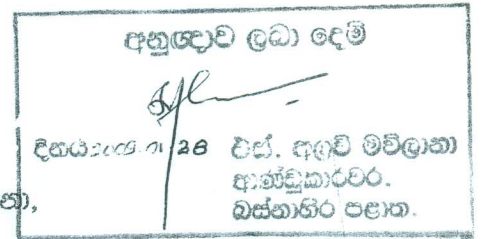 අනුඥාව ලබා දෙමි
දිනය 2009.01.28 එස්. අලවි මව්ලානා
ආණ්ඩුකාරවර.
බස්නාහිර පළාත.